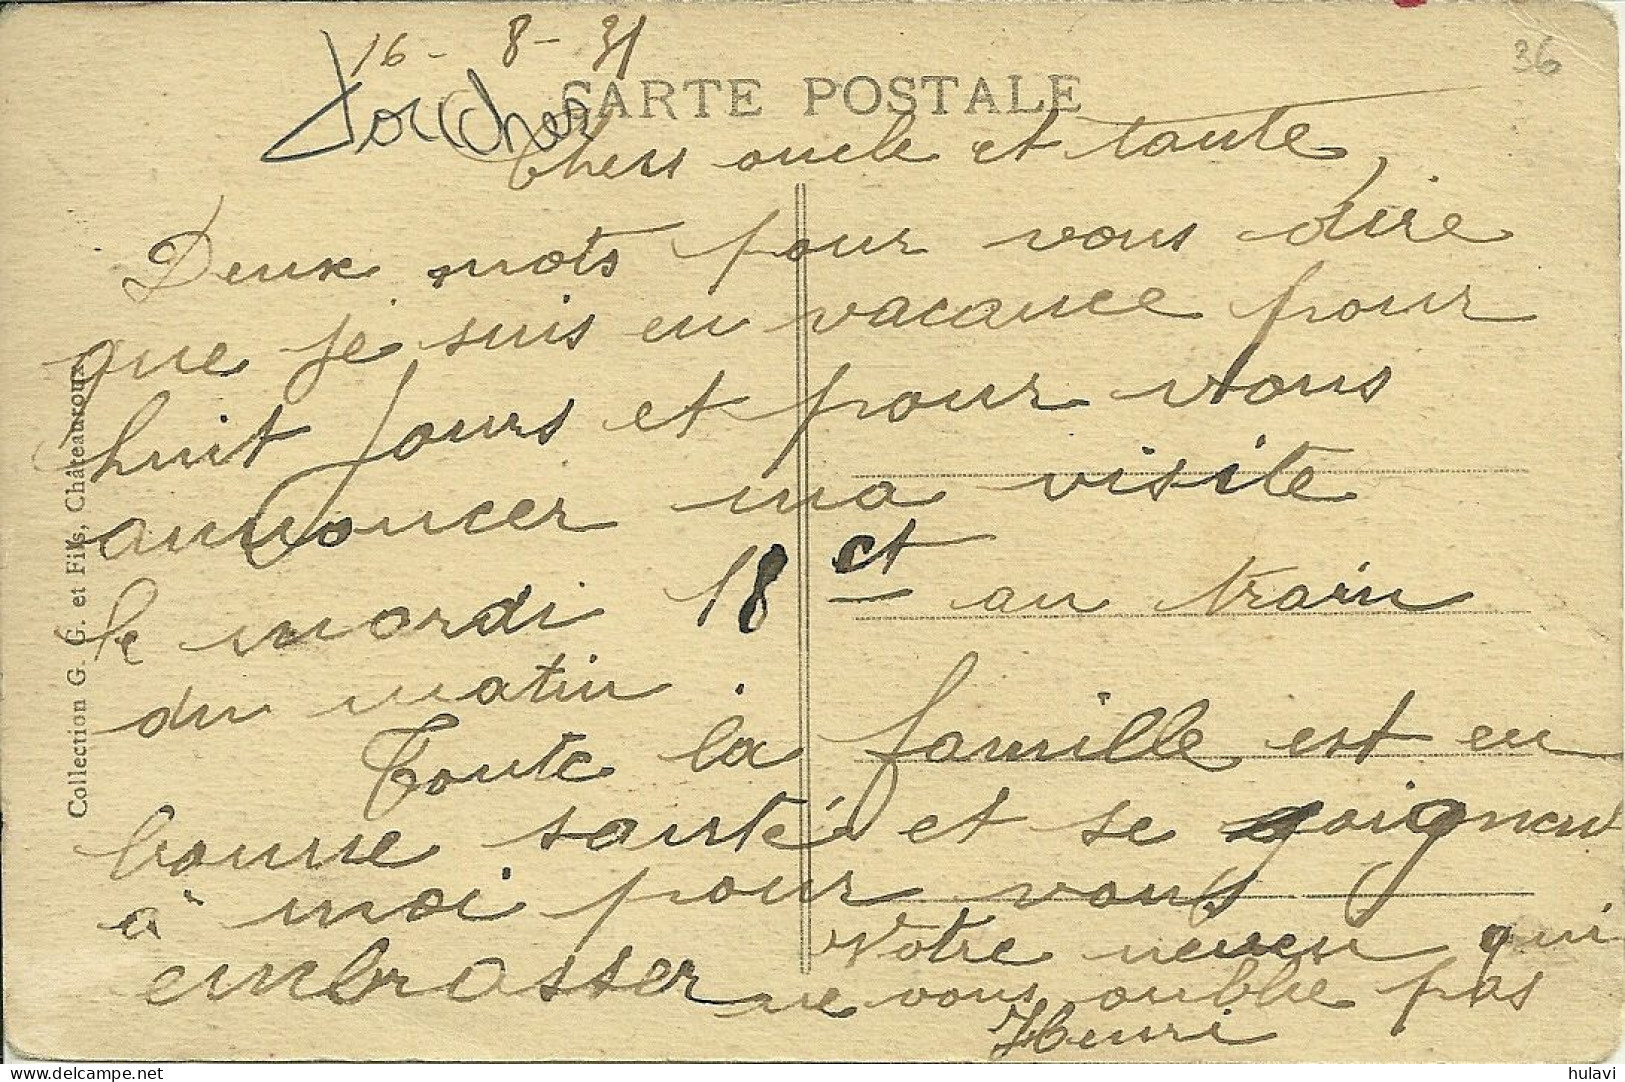 16 - 8 - 31
36
CARTE POSTALE
Chers oncle et tante,
Deux mots pour vous dire
que je suis en vacance pour
huit jours et pour vous
annoncer ma visite
le mardi 18 ct au train
du matin.
Toute la famille est en
bonne santé et se joignent
à moi pour vous
embrasser
Votre neveu qui
ne vous oublie pas
Henri
Collection G. G. et Fils, Châteauroux
hulavi